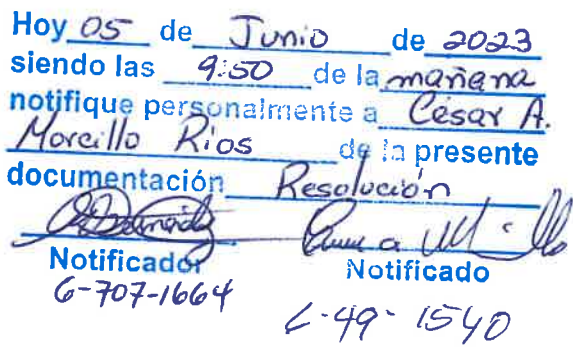 Hoy 05 de Junio de 2023
siendo las 9:50 de la mañana
notifique personalmente a César A.
Morcillo Rios de la presente
documentación Resolución
Notificador Notificado
6-707-1664
6-49-1540